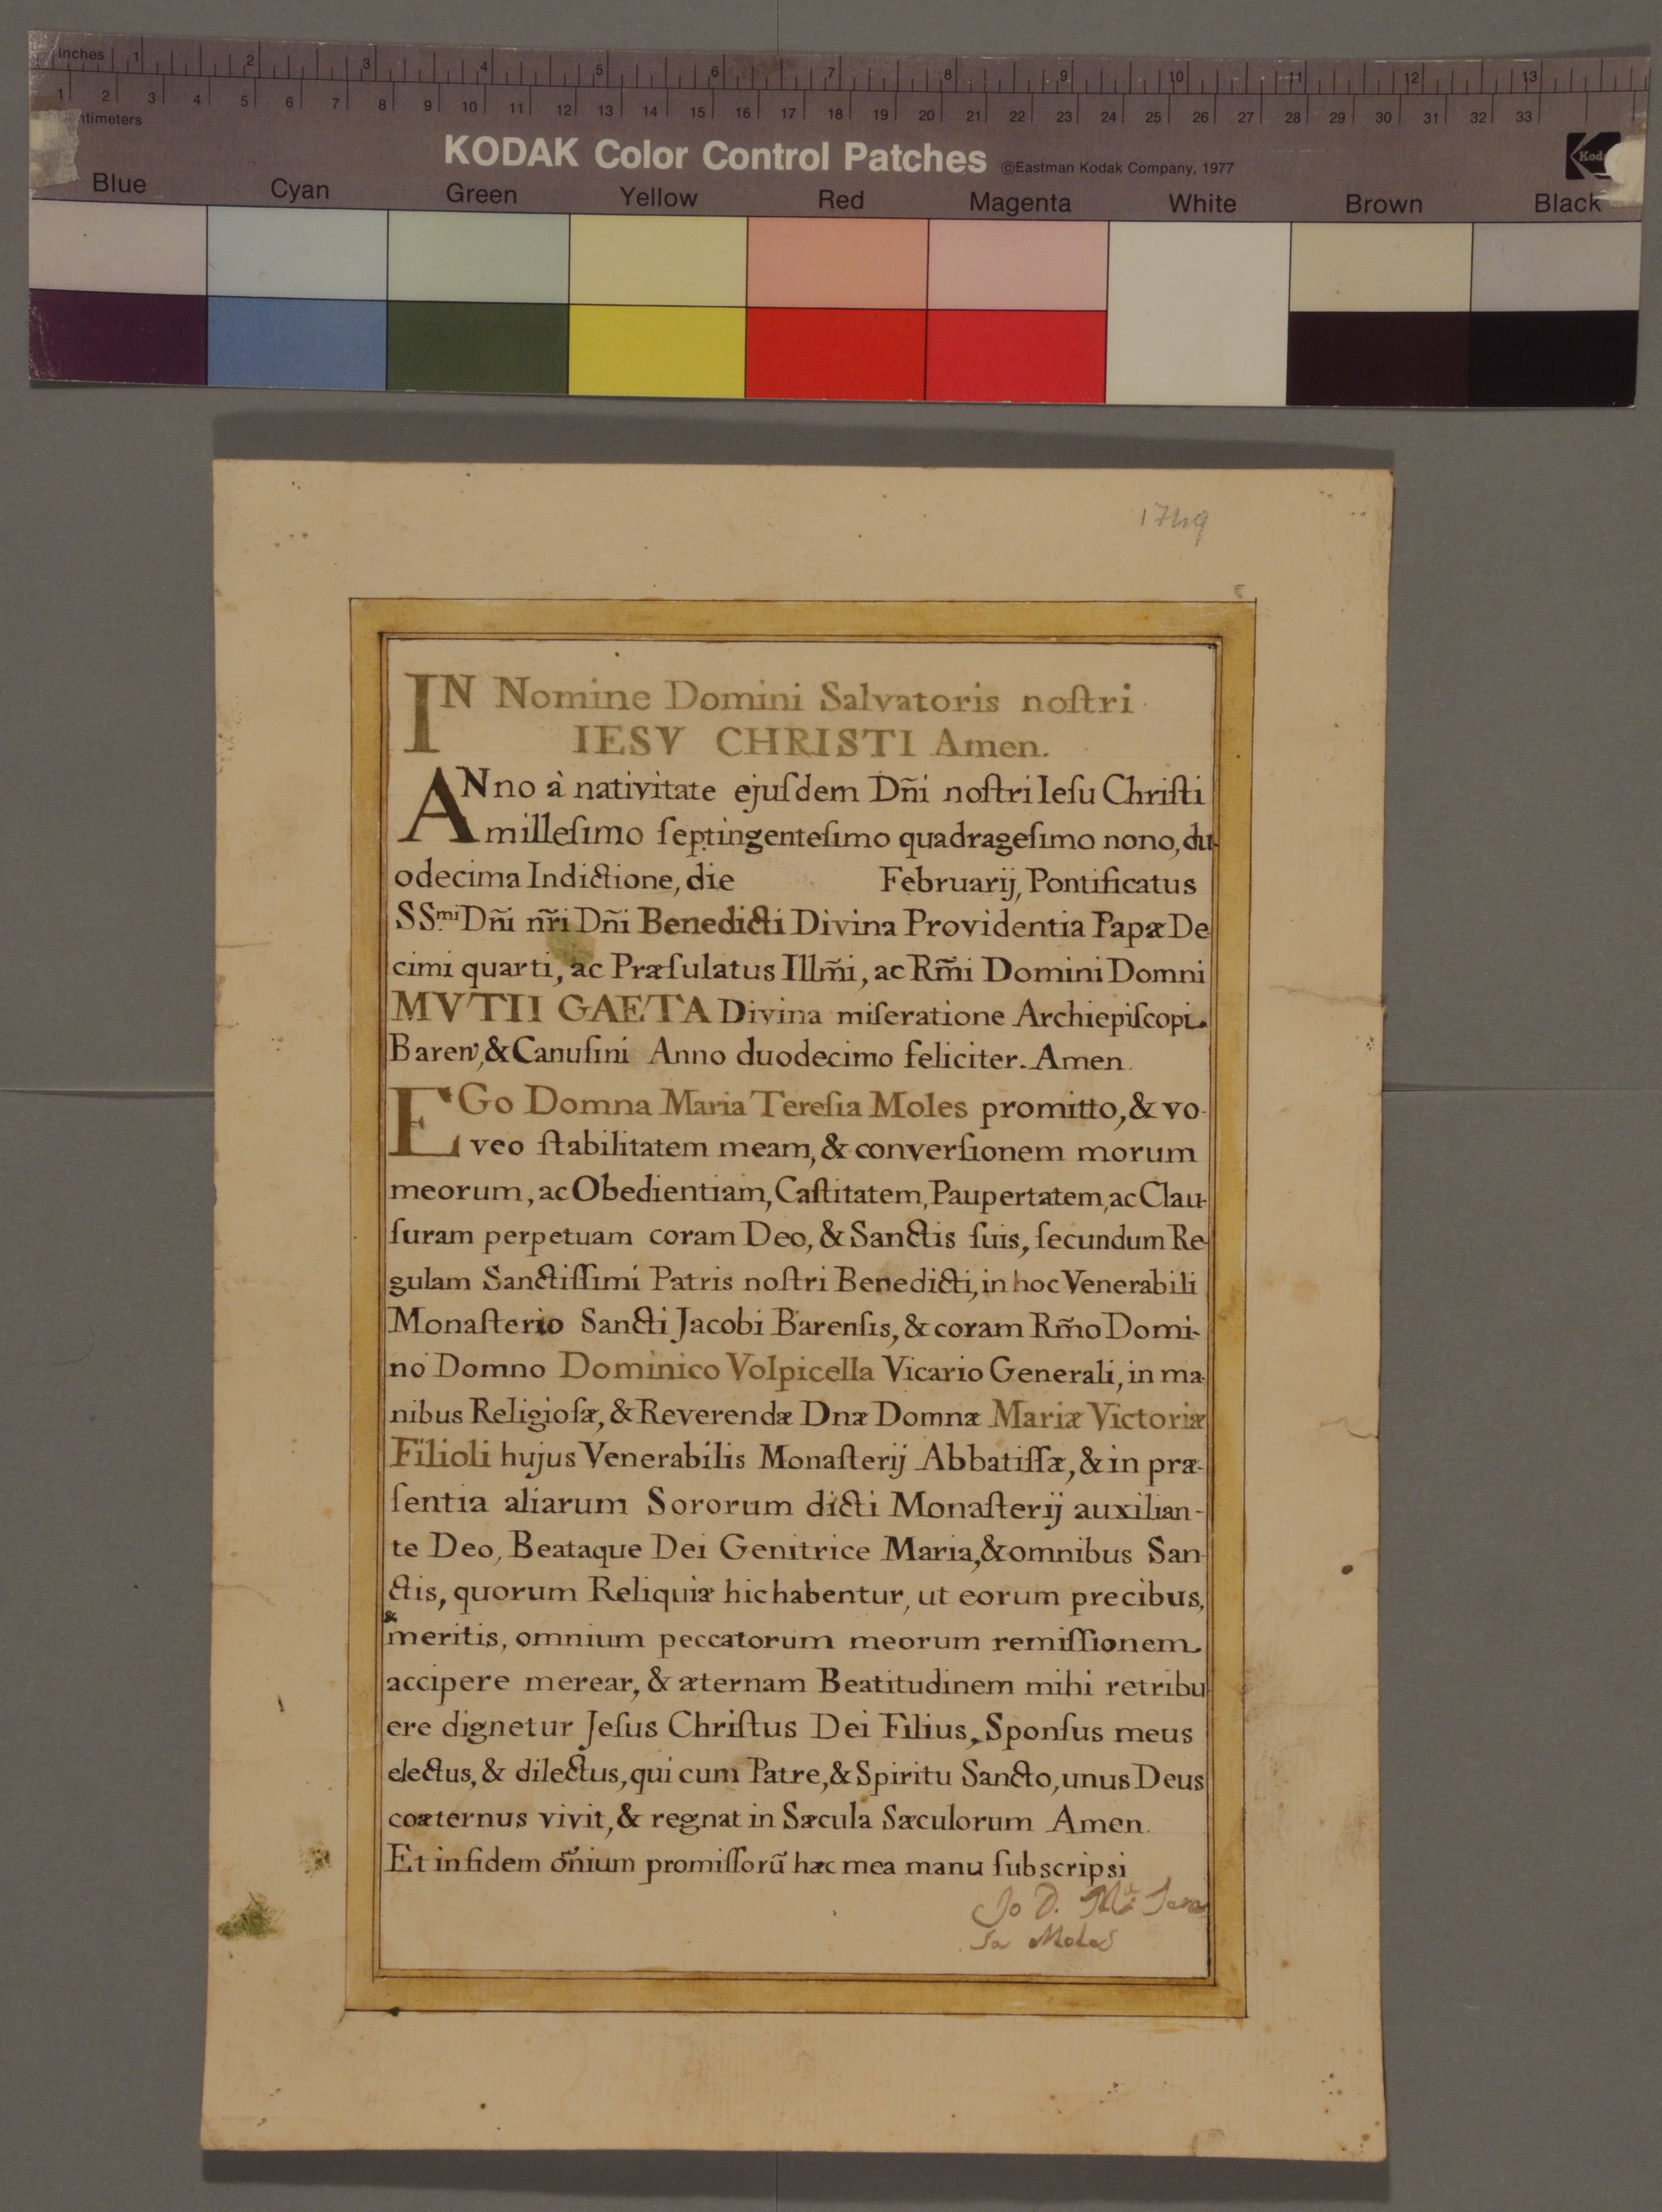 inches 1 2 3 4 5 6 7 8 9 10 11 12 13
1 2 3 4 5 6 7 8 9 10 11 12 13 14 15 16 17 18 19 20 21 22 23 24 25 26 27 28 29 30 31 32 33
KODAK Color Control Patches ©Eastman Kodak Company, 1977
Blue Cyan Green Yellow Red Magenta White Brown Black
1749
IN Nomine Domini Salvatoris noſtri
IESV CHRISTI Amen.
ANno à nativitate ejuſdem Dñi noſtri Ieſu Chriſti
milleſimo ſeptingenteſimo quadrageſimo nono, du-
odecima Indictione, die Februarij, Pontificatus
SS.mi Dñi nr̃i Dñi Benedicti Divina Providentia Papæ De
cimi quarti, ac Præſulatus Illm̃i, ac Rm̃i Domini Domni
MVTII GAETA Divina miſeratione Archiepiſcopi
Baren, & Canuſini Anno duodecimo feliciter. Amen.
EGo Domna Maria Tereſia Moles promitto, & vo-
veo ſtabilitatem meam, & converſionem morum
meorum, ac Obedientiam, Caſtitatem, Paupertatem, ac Clau-
ſuram perpetuam coram Deo, & Sanctis ſuis, ſecundum Re-
gulam Sanctiſſimi Patris noſtri Benedicti, in hoc Venerabili
Monaſterio Sancti Jacobi Barenſis, & coram Rm̃o Domi-
no Domno Dominico Volpicella Vicario Generali, in ma-
nibus Religioſæ, & Reverendæ Dnæ Domnæ Mariæ Victoriæ
Filioli hujus Venerabilis Monaſterij Abbatiſſæ, & in præ-
ſentia aliarum Sororum dicti Monaſterij auxilian-
te Deo, Beataque Dei Genitrice Maria, & omnibus San-
ctis, quorum Reliquiæ hic habentur, ut eorum precibus,
& meritis, omnium peccatorum meorum remiſſionem
accipere merear, & æternam Beatitudinem mihi retribu
ere dignetur Jeſus Chriſtus Dei Filius, Sponſus meus
electus, & dilectus, qui cum Patre, & Spiritu Sancto, unus Deus
coæternus vivit, & regnat in Sæcula Sæculorum Amen.
Et in fidem õnium promiſſorũ hæc mea manu ſubscripsi
Io D. M.a Tere
sa Moles